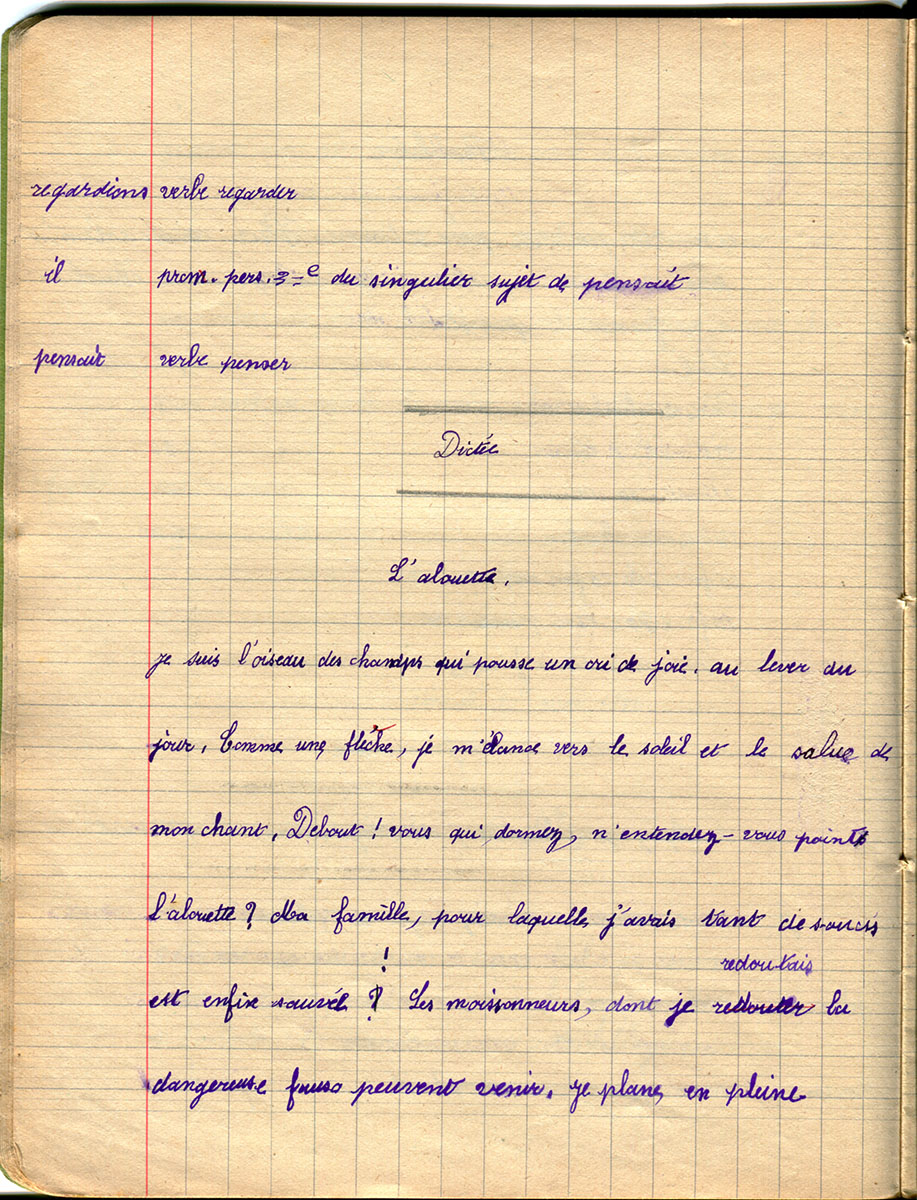 regardions verbe regarder
il pron. pers. 3e du singulier sujet de pensait
pensait verbe penser
Dictée
L'alouette.
je suis l'oiseau des champs qui pousse un cri de joie. au lever du
jour, Comme une flèche, je m'élance vers le soleil et le salue de
mon chant, Debout ! vous qui dormez, n'entendez-vous point
l'alouette ? Ma famille, pour laquelle j'avais tant de soucis
! redoutais
est enfin sauvée ? Les moissonneurs, dont je redouter la
dangereuse peuvent venir. Je plane, en pleine